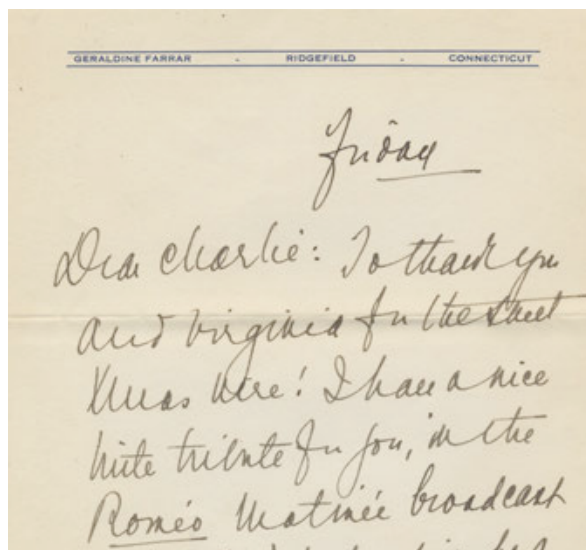 GERALDINE FARRAR - RIDGEFIELD - CONNECTICUT
Friday
Dear Charlie: To thank you
and Virginia for the sweet
Xmas wire! I have a nice
little tribute for you, in the
Roméo Matinée broadcast